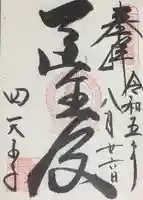 奉拝
令和五年
八月廿日
医王殿
四天王寺